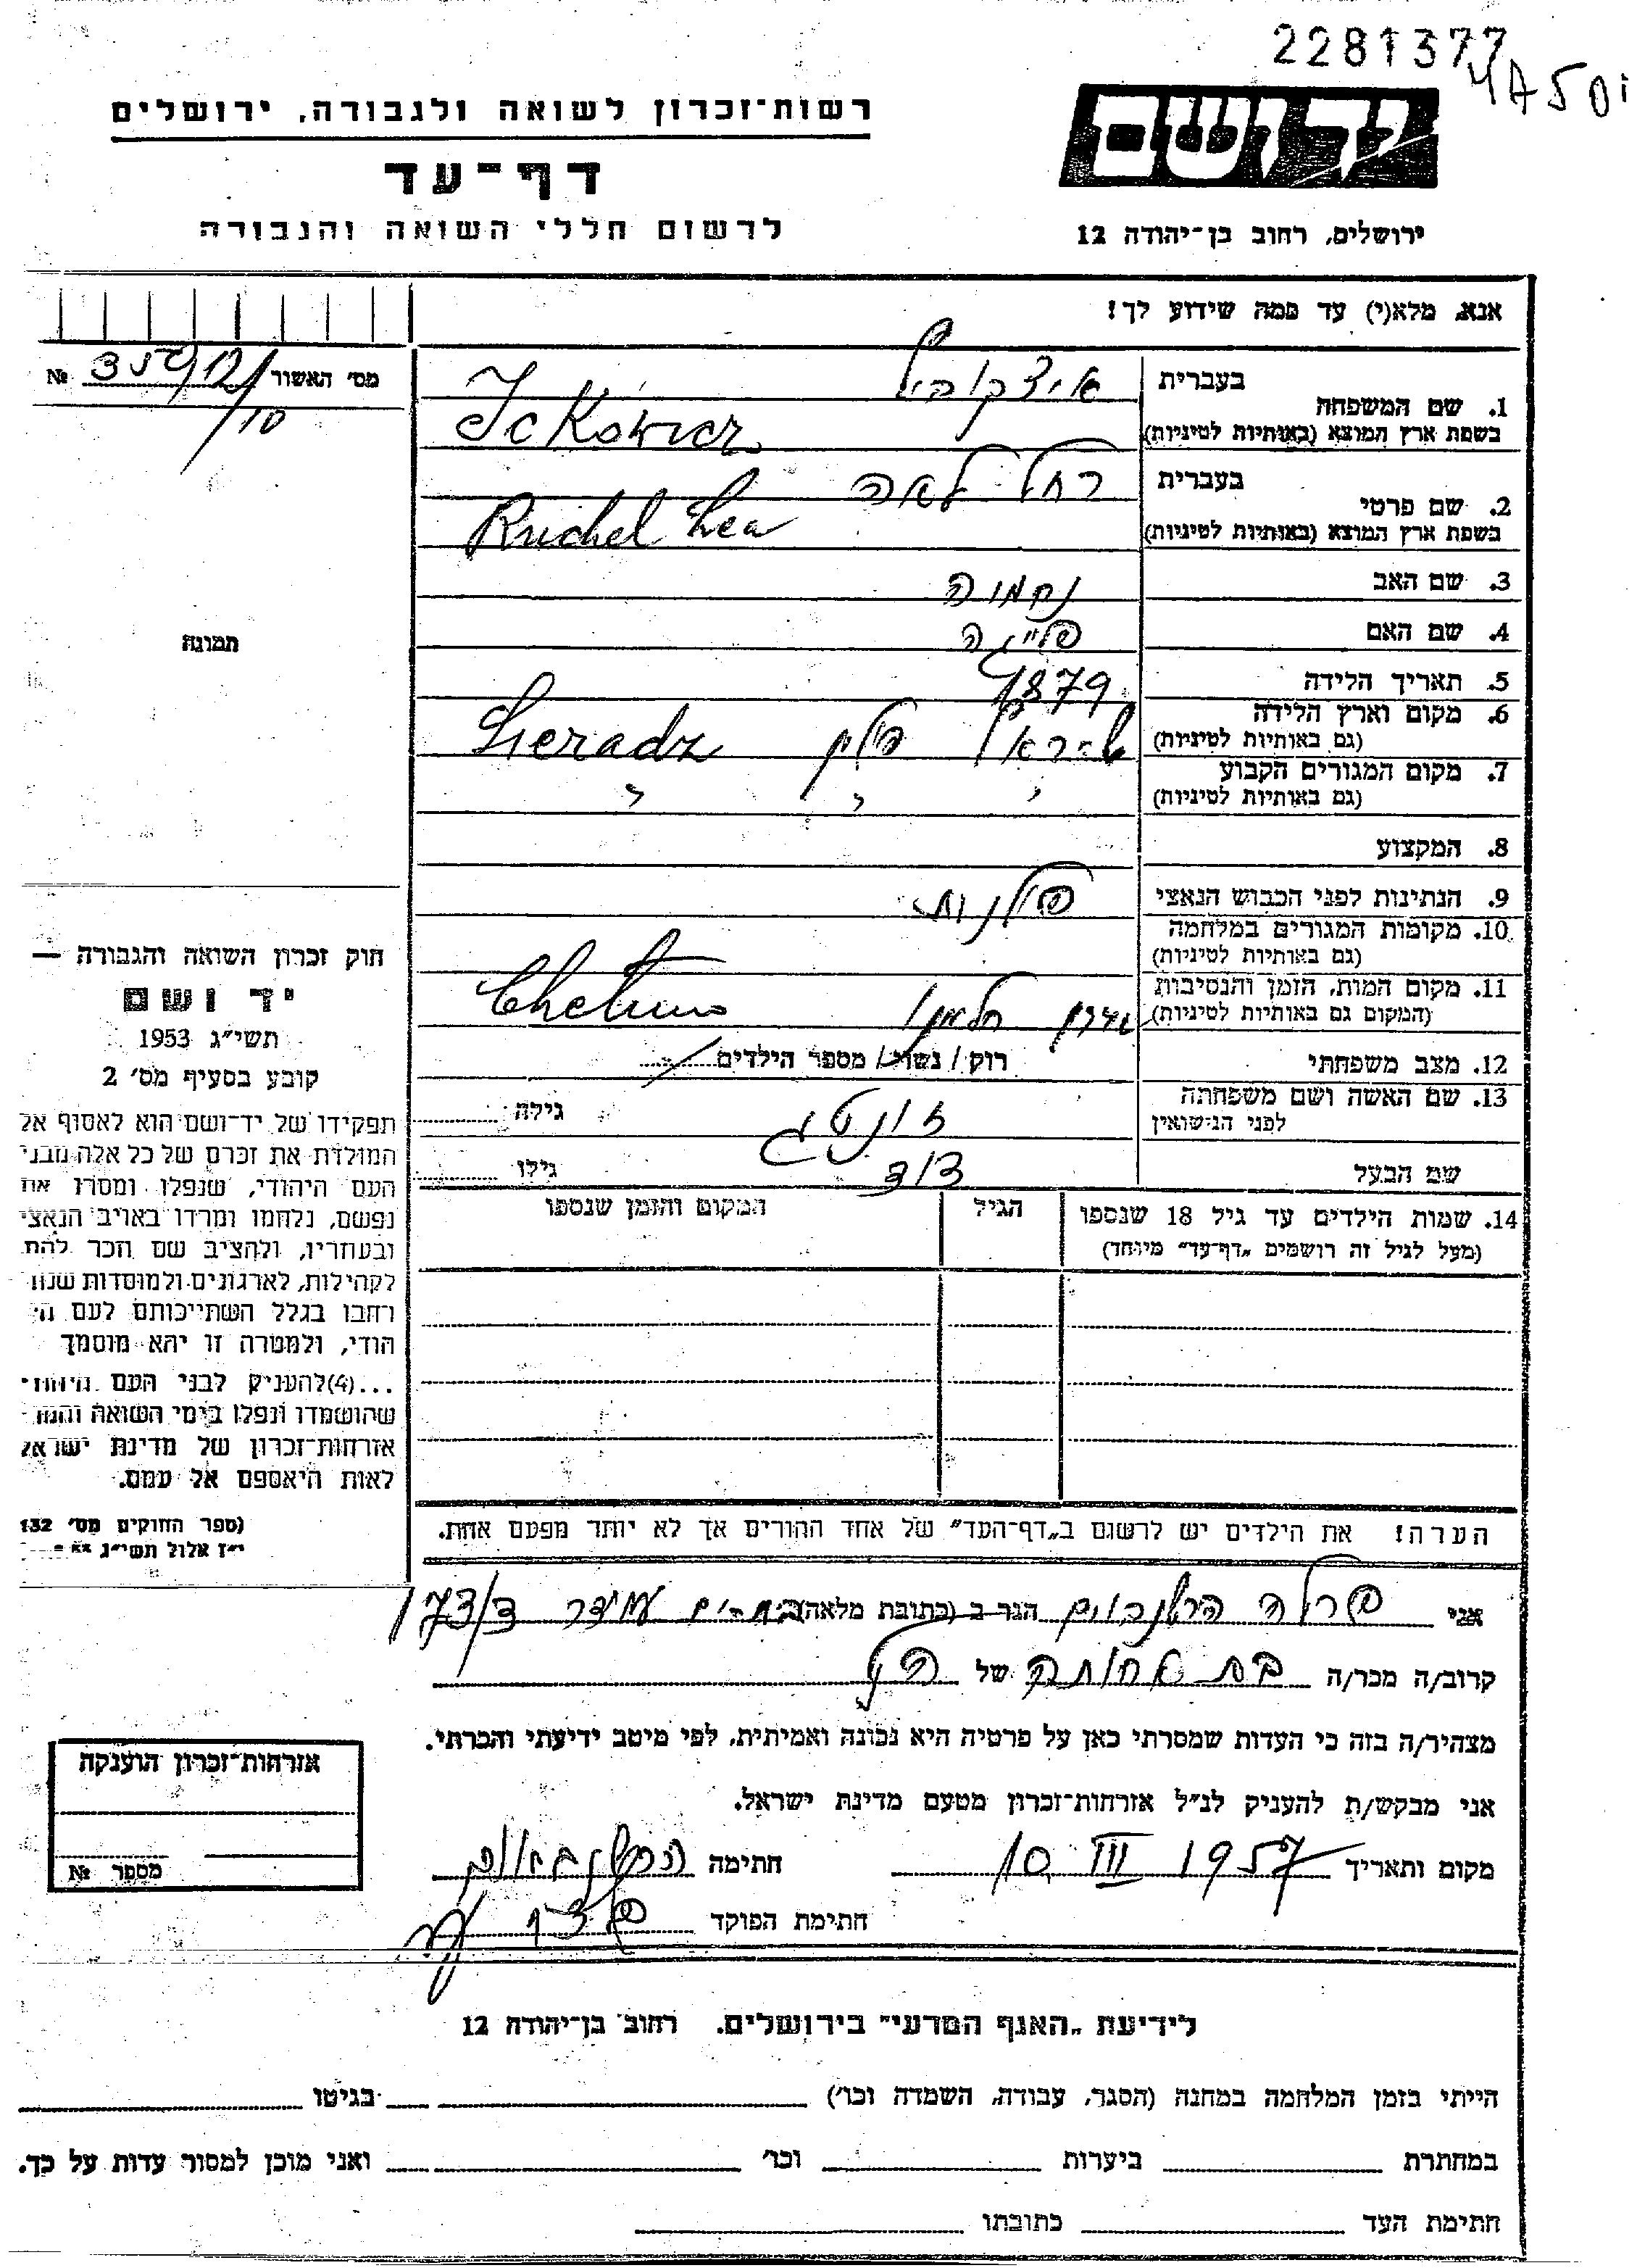 2281377
רשות־זכרון לשואה ולגבורה, ירושלים
דף־עד
לרשום חללי השואה והגבורה
ידושם
ירושלים, רחוב בן־יהודה 12
אנא, מלא(י) עד כמה שידוע לך!
מס׳ האשור № 
1. שם המשפחה
בעברית איצקוביץ
בשפת ארץ המוצא (באותיות לטיניות) Ickowicz
2. שם פרטי
בעברית רחל לאה
בשפת ארץ המוצא (באותיות לטיניות) Ruchel Lea
3. שם האב נחמיה
4. שם האם
5. תאריך הלידה 1879
6. מקום וארץ הלידה
(גם באותיות לטיניות) פולין Sieradz
7. מקום המגורים הקבוע
(גם באותיות לטיניות) " " "
8. המקצוע
9. הנתינות לפני הכבוש הנאצי פולנית
10. מקומות המגורים במלחמה
(גם באותיות לטיניות)
11. מקום המות, הזמן והנסיבות
(המקום גם באותיות לטיניות) חלמנו
12. מצב משפחתי רוק / נשוי / מספר הילדים
13. שם האשה ושם משפחתה
לפני הנישואין זונטג גילה
שם הבעל דוד גילו
14. שמות הילדים עד גיל 18 שנספו
(מעל לגיל זה רושמים „דף־עד" מיוחד)
הגיל
המקום והזמן שנספו
הערה! את הילדים יש לרשום ב„דף־העד" של אחד ההורים אך לא יותר מפעם אחת.
תמונה
חוק זכרון השואה והגבורה —
יד ושם
תשי״ג 1953
קובע בסעיף מס׳ 2
תפקידו של יד־ושם הוא לאסוף אל
המולדת את זכרם של כל אלה מבני
העם היהודי, שנפלו ומסרו את
נפשם, נלחמו ומרדו באויב הנאצי
ובעוזריו, ולהציב שם וזכר להם,
לקהילות, לארגונים ולמוסדות שנח־
רבו בגלל השתייכותם לעם הי־
הודי, ולמטרה זו יהא מוסמך
...(4)להעניק לבני העם היהודי
שהושמדו ונפלו בימי השואה והמרי
אזרחות־זכרון של מדינת ישראל
לאות היאספם אל עמם.
(ספר החוקים מס׳ 132
י״ז אלול תשי״ג
אני פרלה הירשנבוים הגר ב (כתובת מלאה) עמידר 173/ד
קרוב/ה מכר/ה בת אחותה של הנ״ל
מצהיר/ה בזה כי העדות שמסרתי כאן על פרטיה היא נכונה ואמיתית, לפי מיטב ידיעתי והכרתי.
אני מבקש/ת להעניק לנ״ל אזרחות־זכרון מטעם מדינת ישראל.
מקום ותאריך 10 III 1957 חתימה הירשנבוים
חתימת הפוקד
אזרחות־זכרון הוענקה
מספר №
לידיעת „האגף המדעי" בירושלים. רחוב בן־יהודה 12
הייתי בזמן המלחמה במחנה (הסגר, עבודה, השמדה וכו׳) בגיטו
במחתרת ביערות וכו׳ ואני מוכן למסור עדות על כך.
חתימת העד כתובתו